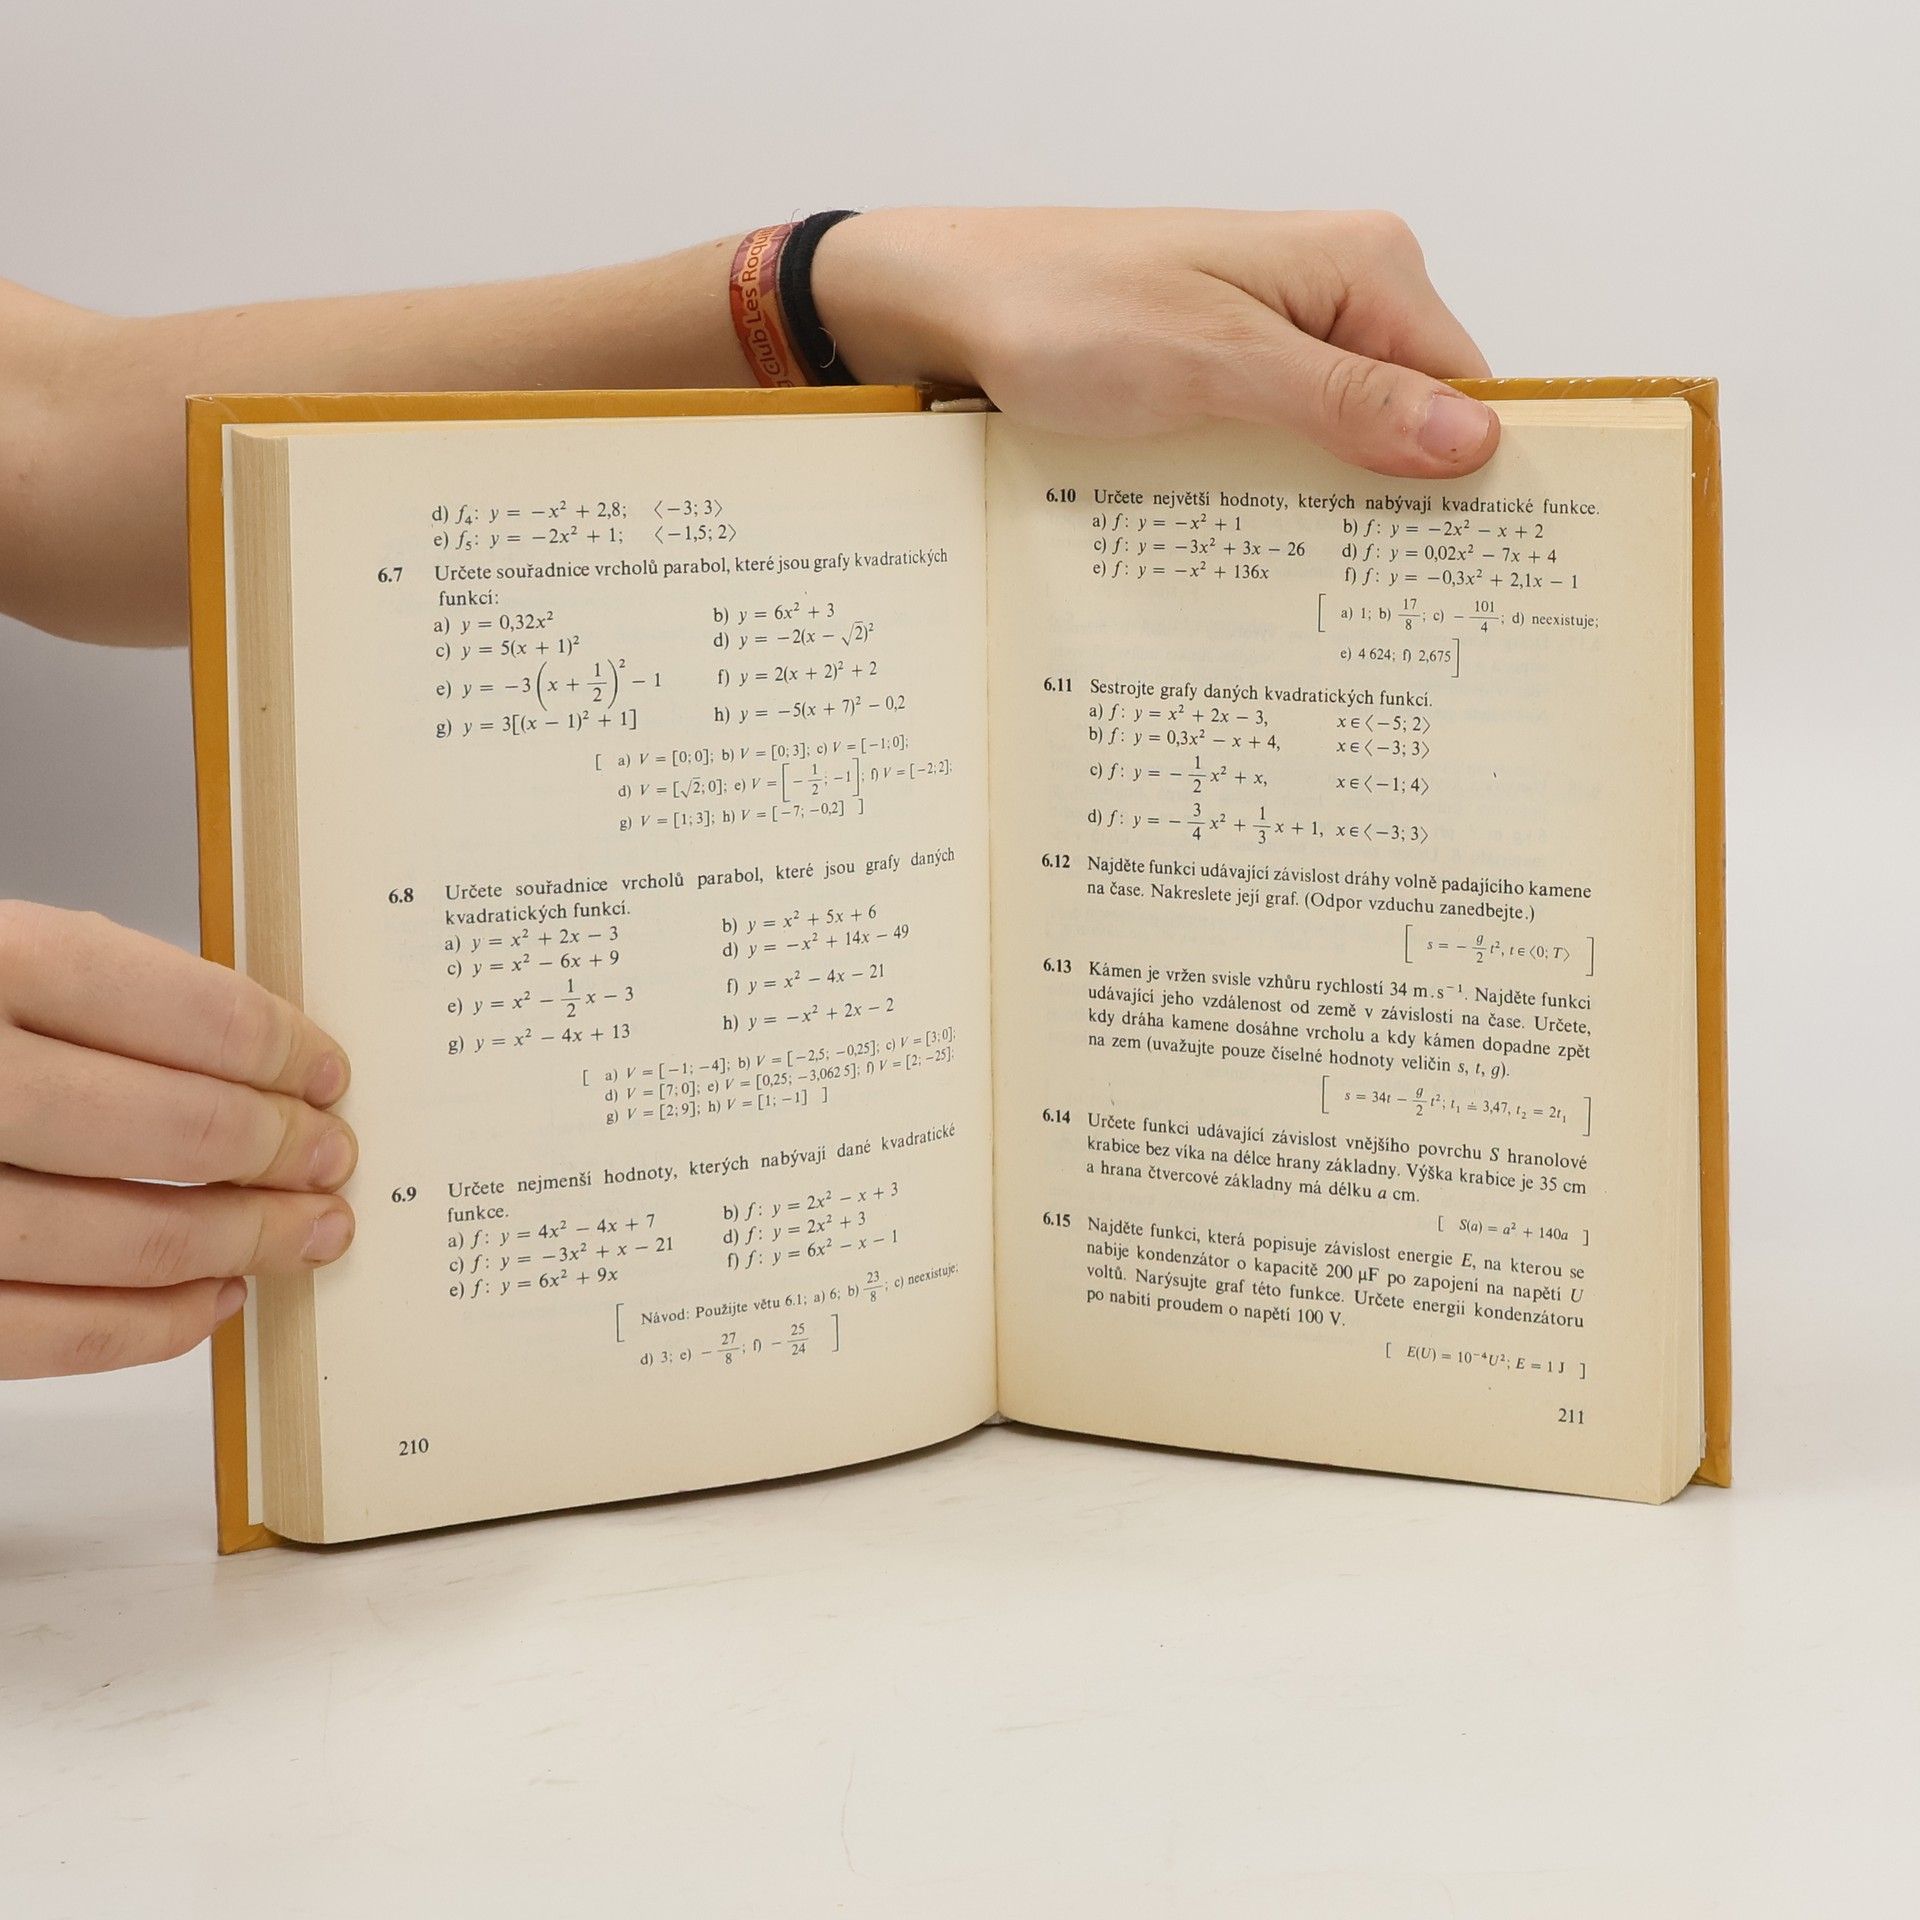 Club Les Roqu
d) f₄: y = −x² + 2,8; ⟨−3; 3⟩
e) f₅: y = −2x² + 1; ⟨−1,5; 2⟩
6.7 Určete souřadnice vrcholů parabol, které jsou grafy kvadratických
funkcí:
a) y = 0,32x² b) y = 6x² + 3
c) y = 5(x + 1)² d) y = −2(x − √2)²
e) y = −3(x + 1/2)² − 1 f) y = 2(x + 2)² + 2
g) y = 3[(x − 1)² + 1] h) y = −5(x + 7)² − 0,2
[ a) V = [0; 0]; b) V = [0; 3]; c) V = [−1; 0];
d) V = [√2; 0]; e) V = [−1/2; −1]; f) V = [−2; 2];
g) V = [1; 3]; h) V = [−7; −0,2] ]
6.8 Určete souřadnice vrcholů parabol, které jsou grafy daných
kvadratických funkcí.
a) y = x² + 2x − 3 b) y = x² + 5x + 6
c) y = x² − 6x + 9 d) y = −x² + 14x − 49
e) y = x² − 1/2 x − 3 f) y = x² − 4x − 21
g) y = x² − 4x + 13 h) y = −x² + 2x − 2
[ a) V = [−1; −4]; b) V = [−2,5; −0,25]; c) V = [3; 0];
d) V = [7; 0]; e) V = [0,25; −3,062 5]; f) V = [2; −25];
g) V = [2; 9]; h) V = [1; −1] ]
6.9 Určete nejmenší hodnoty, kterých nabývají dané kvadratické
funkce.
a) f: y = 4x² − 4x + 7 b) f: y = 2x² − x + 3
c) f: y = −3x² + x − 21 d) f: y = 2x² + 3
e) f: y = 6x² + 9x f) f: y = 6x² − x − 1
[ Návod: Použijte větu 6.1; a) 6; b) 23/8; c) neexistuje;
d) 3; e) −27/8; f) −25/24 ]
210
6.10 Určete největší hodnoty, kterých nabývají kvadratické funkce.
a) f: y = −x² + 1 b) f: y = −2x² − x + 2
c) f: y = −3x² + 3x − 26 d) f: y = 0,02x² − 7x + 4
e) f: y = −x² + 136x f) f: y = −0,3x² + 2,1x − 1
[ a) 1; b) 17/8; c) −101/4; d) neexistuje;
e) 4 624; f) 2,675 ]
6.11 Sestrojte grafy daných kvadratických funkcí.
a) f: y = x² + 2x − 3, x ∈ ⟨−5; 2⟩
b) f: y = 0,3x² − x + 4, x ∈ ⟨−3; 3⟩
c) f: y = −1/2 x² + x, x ∈ ⟨−1; 4⟩
d) f: y = −3/4 x² + 1/3 x + 1, x ∈ ⟨−3; 3⟩
6.12 Najděte funkci udávající závislost dráhy volně padajícího kamene
na čase. Nakreslete její graf. (Odpor vzduchu zanedbejte.)
[ s = −g/2 t², t ∈ ⟨0; T⟩ ]
6.13 Kámen je vržen svisle vzhůru rychlostí 34 m.s⁻¹. Najděte funkci
udávající jeho vzdálenost od země v závislosti na čase. Určete,
kdy dráha kamene dosáhne vrcholu a kdy kámen dopadne zpět
na zem (uvažujte pouze číselné hodnoty veličin s, t, g).
[ s = 34t − g/2 t²; t₁ ≐ 3,47, t₂ = 2t₁ ]
6.14 Určete funkci udávající závislost vnějšího povrchu S hranolové
krabice bez víka na délce hrany základny. Výška krabice je 35 cm
a hrana čtvercové základny má délku a cm.
[ S(a) = a² + 140a ]
6.15 Najděte funkci, která popisuje závislost energie E, na kterou se
nabije kondenzátor o kapacitě 200 μF po zapojení na napětí U
voltů. Narýsujte graf této funkce. Určete energii kondenzátoru
po nabití proudem o napětí 100 V.
[ E(U) = 10⁻⁴U²; E = 1 J ]
211